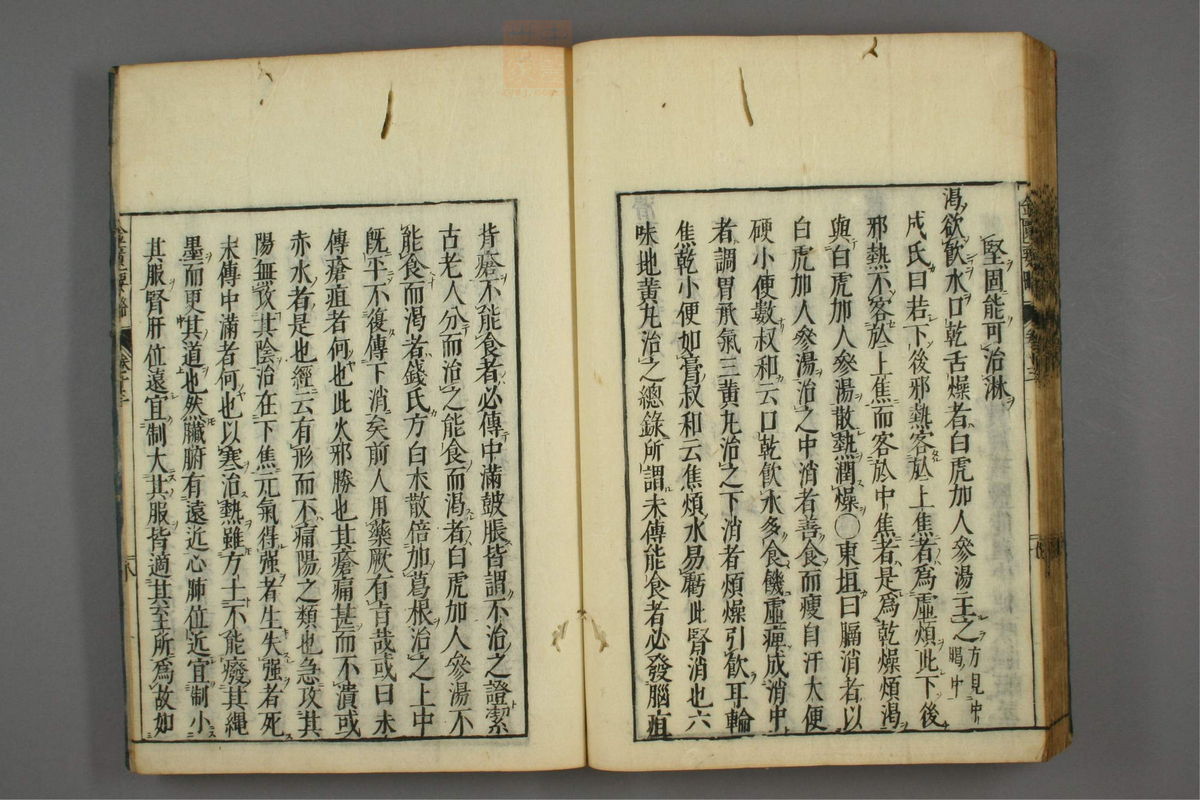 堅固能可治淋
渴欲飲水口乾舌燥者白虎加人參湯主之方見中暍中
成氏曰若下後邪熱客於上焦者爲虛煩此下後
邪熱不客於上焦而客於中焦者是爲乾燥煩渴
與白虎加人參湯散熱潤燥○東垣曰膈消者以
白虎加人參湯治之中消者善食而瘦自汗大便
硬小便數叔和云口乾飲水多食饑虛癉成消中
者調胃承氣三黃丸治之下消者煩燥引飲耳輪
焦乾小便如膏叔和云焦煩水易虧此腎消也六
味地黃丸治之總錄所謂未傳能食者必發腦疽
背瘡不能食者必傳中滿皷脹皆謂不治之證潔
古老人分而治之能食而渴者白虎加人參湯不
能食而渴者錢氏方白朮散倍加葛根治之上中
既平不復傳下消矣前人用藥厥有旨哉或曰未
傳瘡疽者何也此火邪勝也其瘡痛甚而不潰或
赤水者是也經云有形而不痛陽之類也急攻其
陽無攻其陰治在下焦元氣得强者生失强者死
末傳中滿者何也以寒治熱雖方士不能廢其繩
墨而更其道也然臟腑有遠近心肺位近宜制小
其服腎肝位遠宜制大其服皆適其至所爲故如